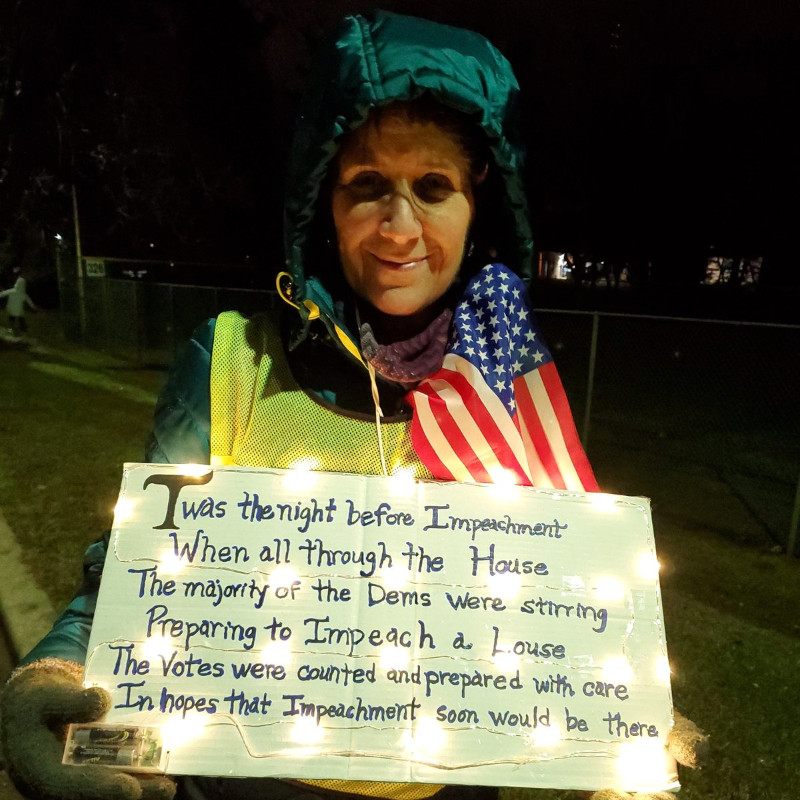 Twas the night before Impeachment
When all through the House
The majority of the Dems were stirring
Preparing to Impeach a Louse
The Votes were counted and prepared with care
In hopes that Impeachment soon would be there